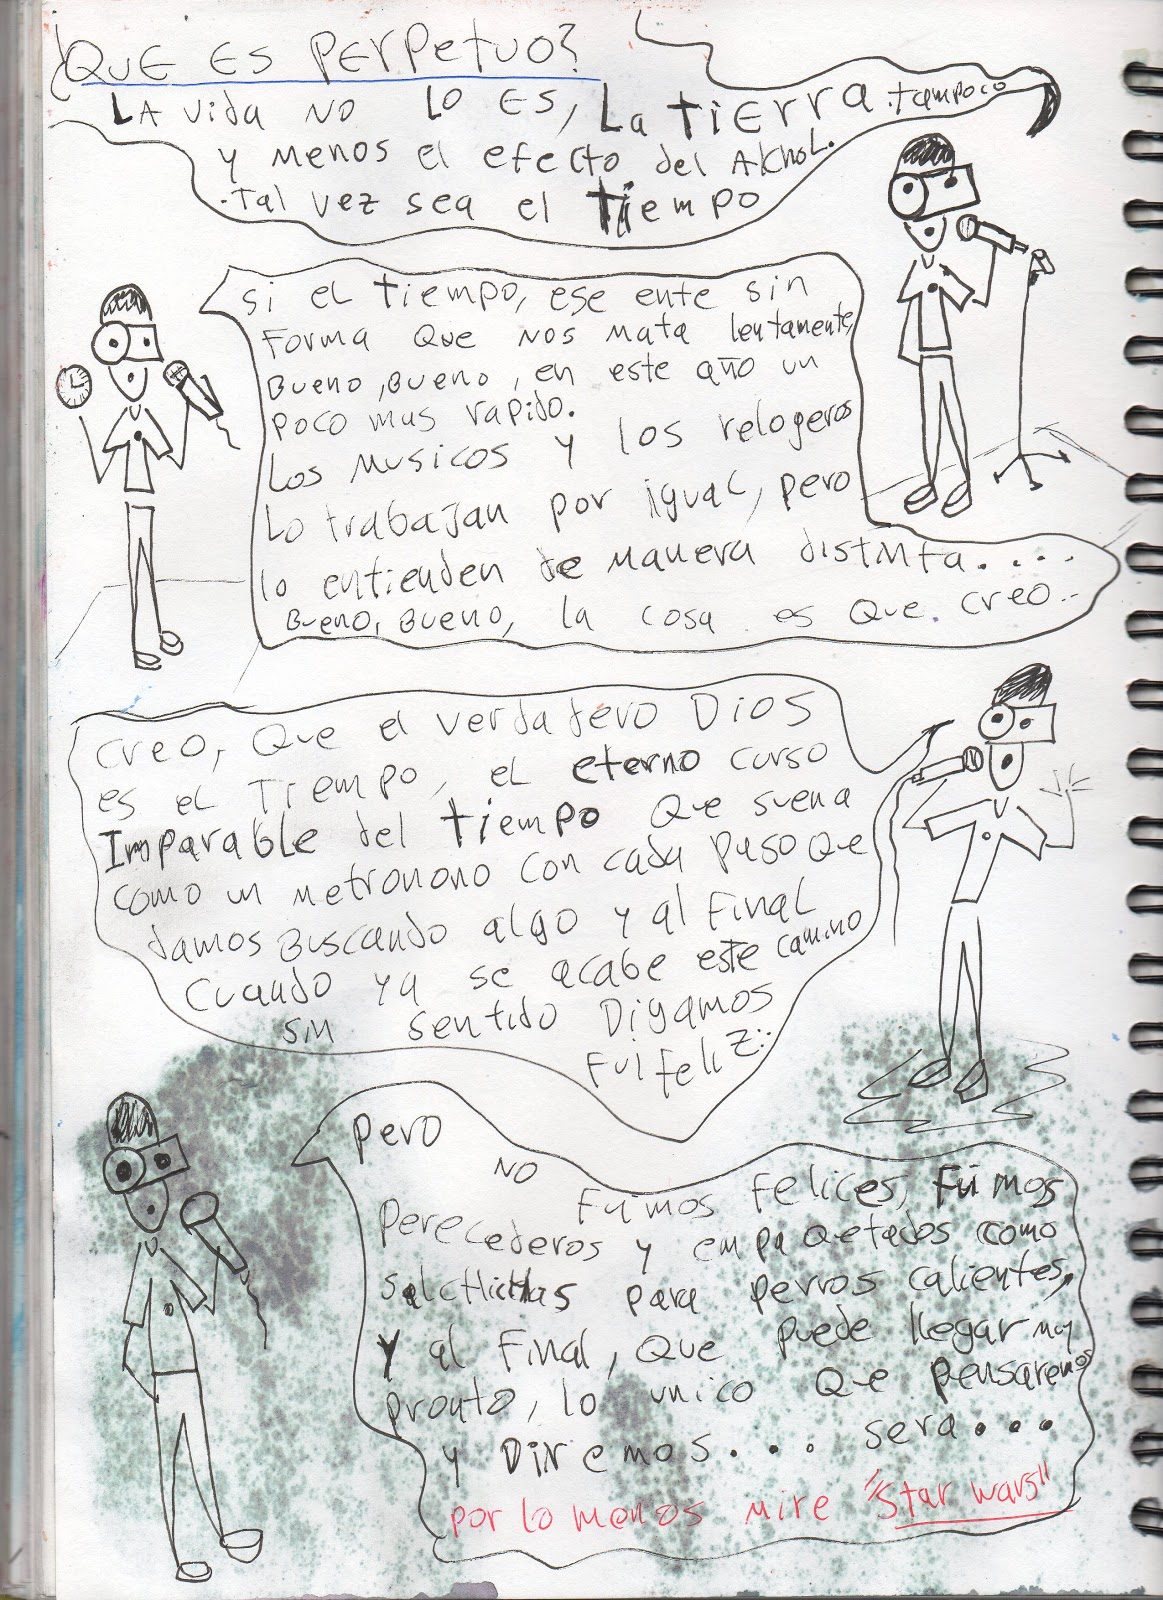 ¿QUE ES PERPETUO?
LA vida NO LO ES, La tIERRA. tampoco
y MENOS el efecto del AlchoL.
.Tal vez sea el tiempo
si el tiempo, ese ente sin
Forma Que nos mata lentamente,
Bueno, Bueno, en este año un
poco mus rapido.
Los Musicos y los relogeros
Lo trabajan por igual, pero
lo entienden de manera distinta....
Bueno, Bueno, la cosa es que. creo..
creo, Que el verdadero Dios
es el Tiempo, el eterno curso
Imparable del tiempo Que suena
como un metronono con cada paso que
damos Buscando algo y al final
cuando ya se acabe este camino
sin sentido Digamos
Fui feliz...
pero
no
Fuimos Felices, Fuimos
Perecederos y empaquetados como
salchichas para perros calientes,
y al Final, Que puede llegar muy
pronto, lo unico que pensaremos
y Diremos... sera...
por lo menos mire "Star wars"